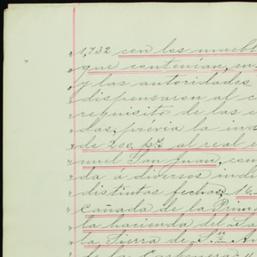 " 1,732 con los muebl
" que contenian, su
" y las autoridades
" dispensaron al c
" requisito de las
" das, previa la in
" de 200 ps. al real
" muel San Juan, con
" da á diversos indi
" distintas fechas
" Cañada de la
" la hacienda del
" la Tierra de